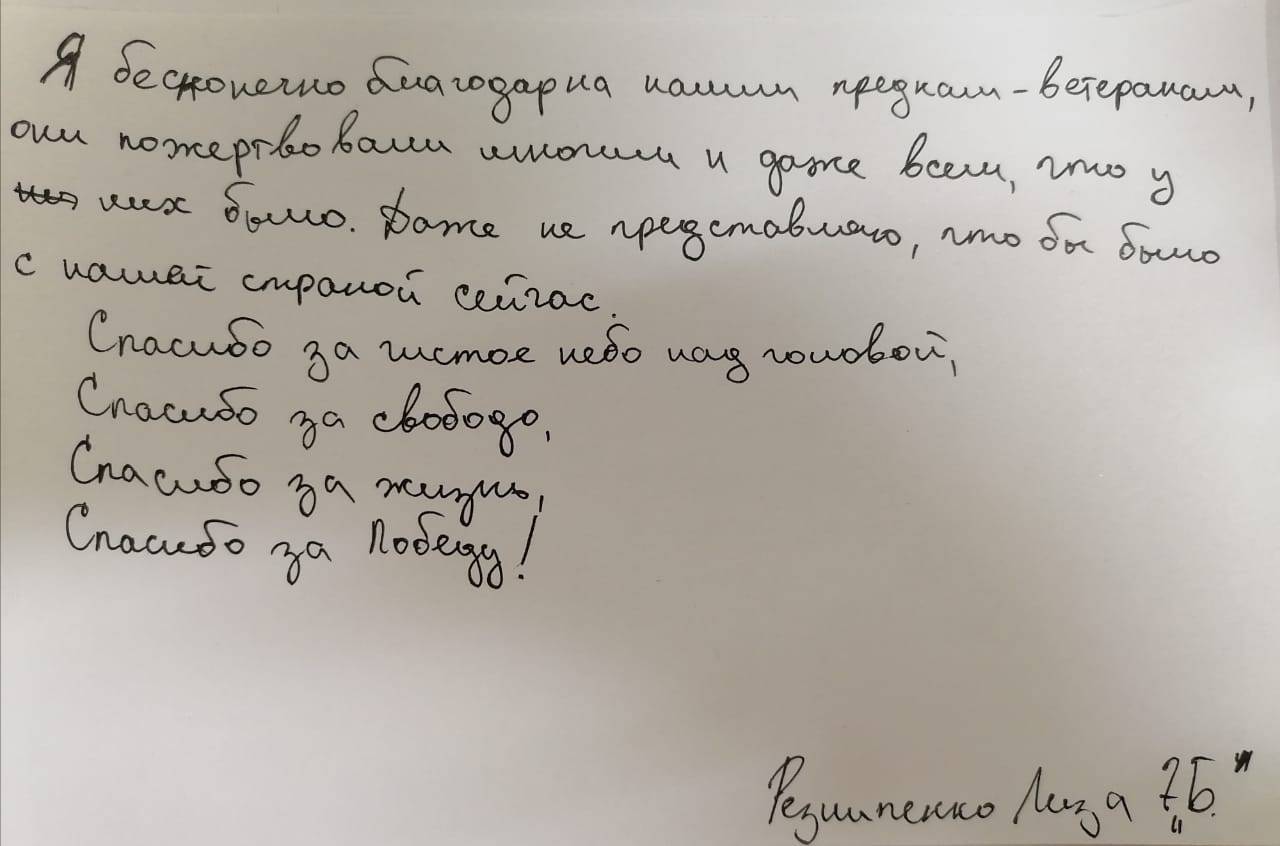 Я бесконечно благодарна нашим предкам-ветеранам,
они пожертвовали многим и даже всем, что у
них было. Даже не представляю, что бы было
с нашей страной сейчас.
Спасибо за чистое небо над головой,
Спасибо за свободо,
Спасибо за жизнь,
Спасибо за Победу!
Лиза 7„Б"